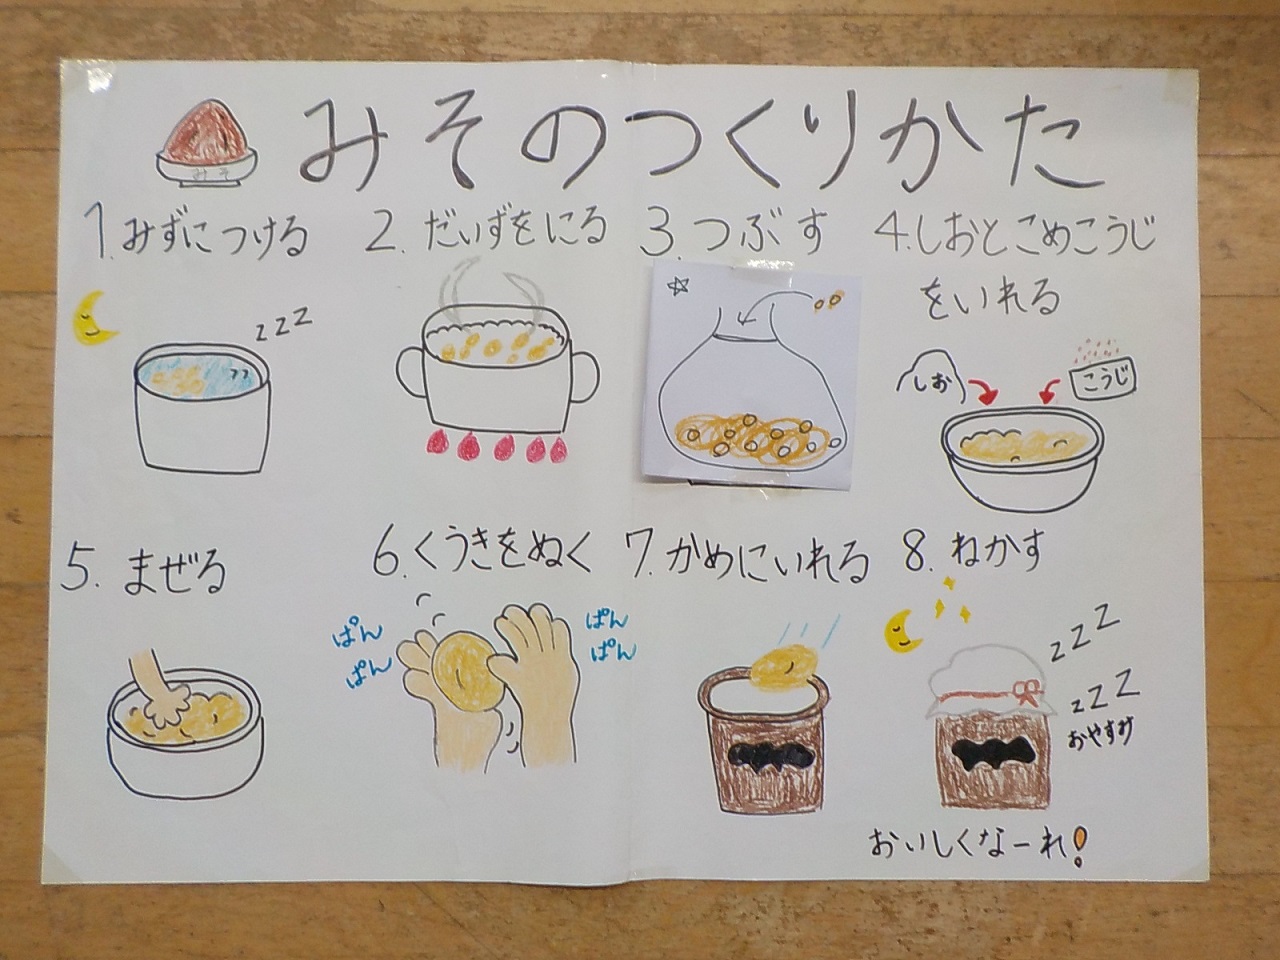 みそのつくりかた
みそ
1.みずにつける
zzz
2.だいずをにる
3.つぶす
4.しおとこめこうじ
をいれる
しお
こうじ
5.まぜる
6.くうきをぬく
ぱん
ぱん
ぱん
ぱん
7.かめにいれる
8.ねかす
zzz
zzz
おやすみ
おいしくなーれ!